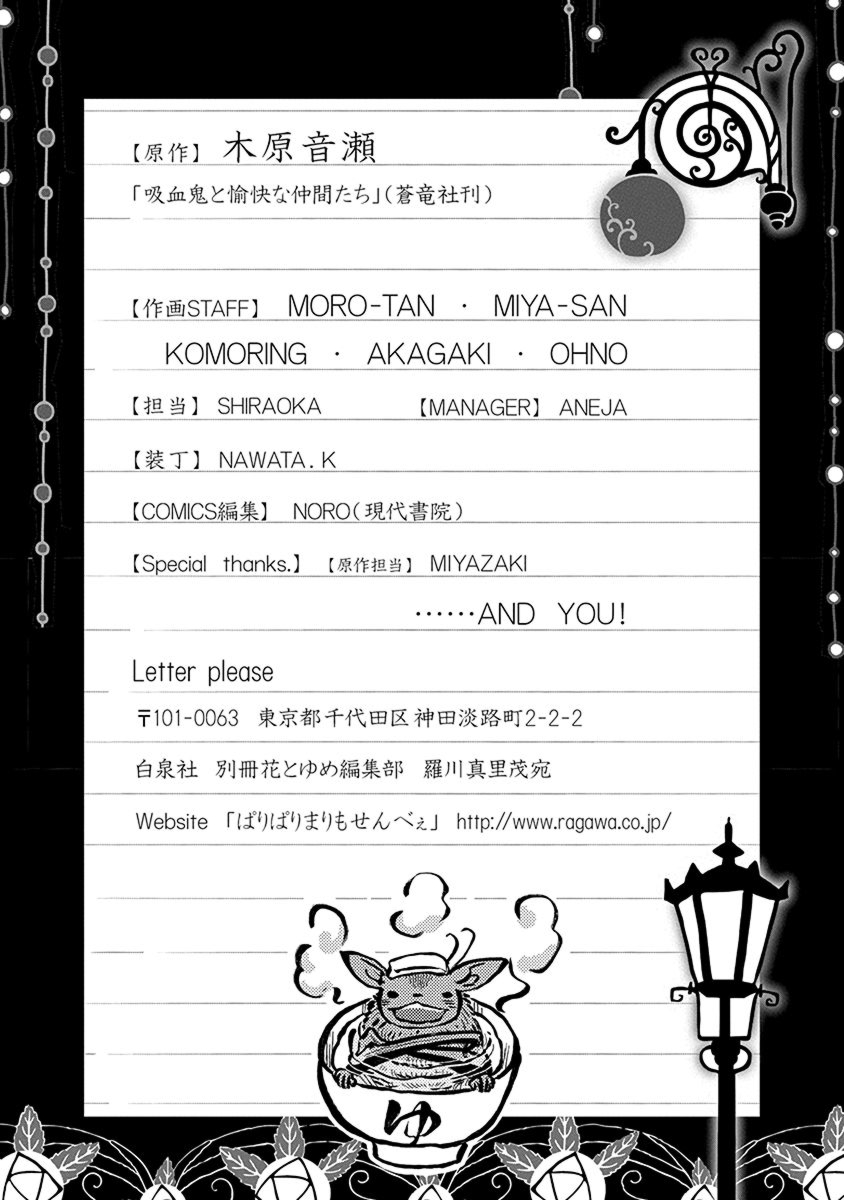 【原作】 木原音瀬
「吸血鬼と愉快な仲間たち」(蒼竜社刊)
【作画STAFF】 MORO-TAN ・ MIYA-SAN
KOMORING ・ AKAGAKI ・ OHNO
【担当】 SHIRAOKA 【MANAGER】 ANEJA
【装丁】 NAWATA.K
【COMICS編集】 NORO(現代書院)
【Special thanks.】 【原作担当】 MIYAZAKI
……AND YOU!
Letter please
〒101-0063 東京都千代田区神田淡路町2-2-2
白泉社 別冊花とゆめ編集部 羅川真里茂宛
Website 「ぱりぱりまりもせんべぇ」 http://www.ragawa.co.jp/
ゆ